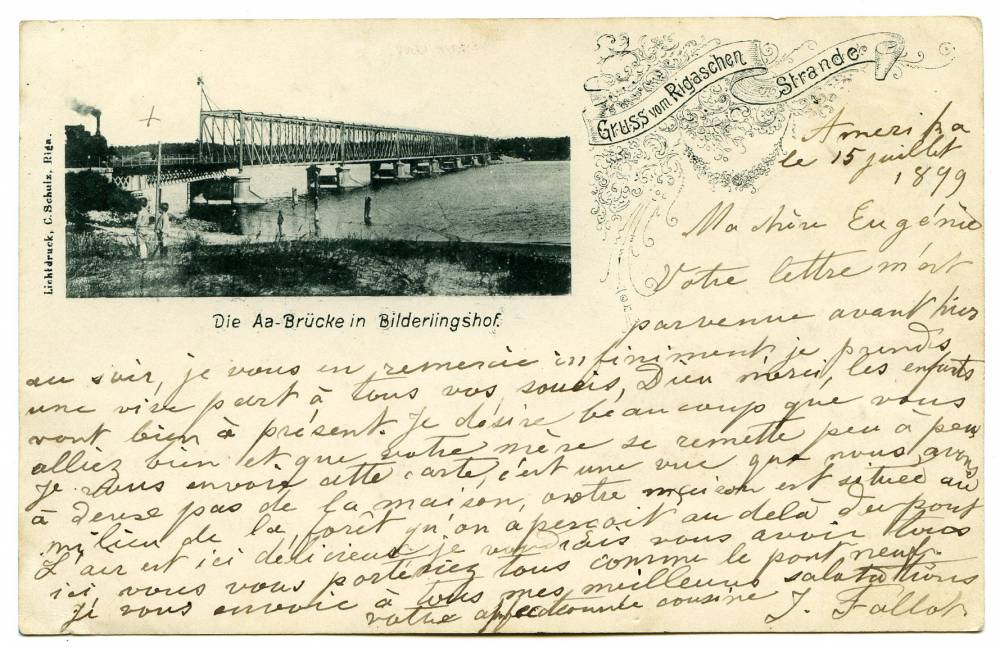 Gruss vom Rigaschen Strande
Lichtdruck, C. Schulz, Riga.
Die Aa-Brücke in Bilderlingshof.
le 15 juillet
1899
Ma chère Eugénie
Votre lettre m'est
parvenue avant hier
au soir, je vous en remercie infiniment, je prends
une vive part à tous vos soucis, Dieu merci, les enfants
vont bien à présent. Je désire beaucoup que vous
alliez bien et que votre mère se remette peu à peu
Je vous envoie cette carte, c'est une vue que nous avons
à deuse pas de la maison, notre maison est située au
milieu de la forêt qu'on aperçoit au delà du pont
L'air est ici délicieux je voudrais vous avoir tous
ici, vous vous porteriez tous comme le pont neuf.
Je vous envoie à tous mes meilleures salutations
votre affectionnée cousine J. Fallot.